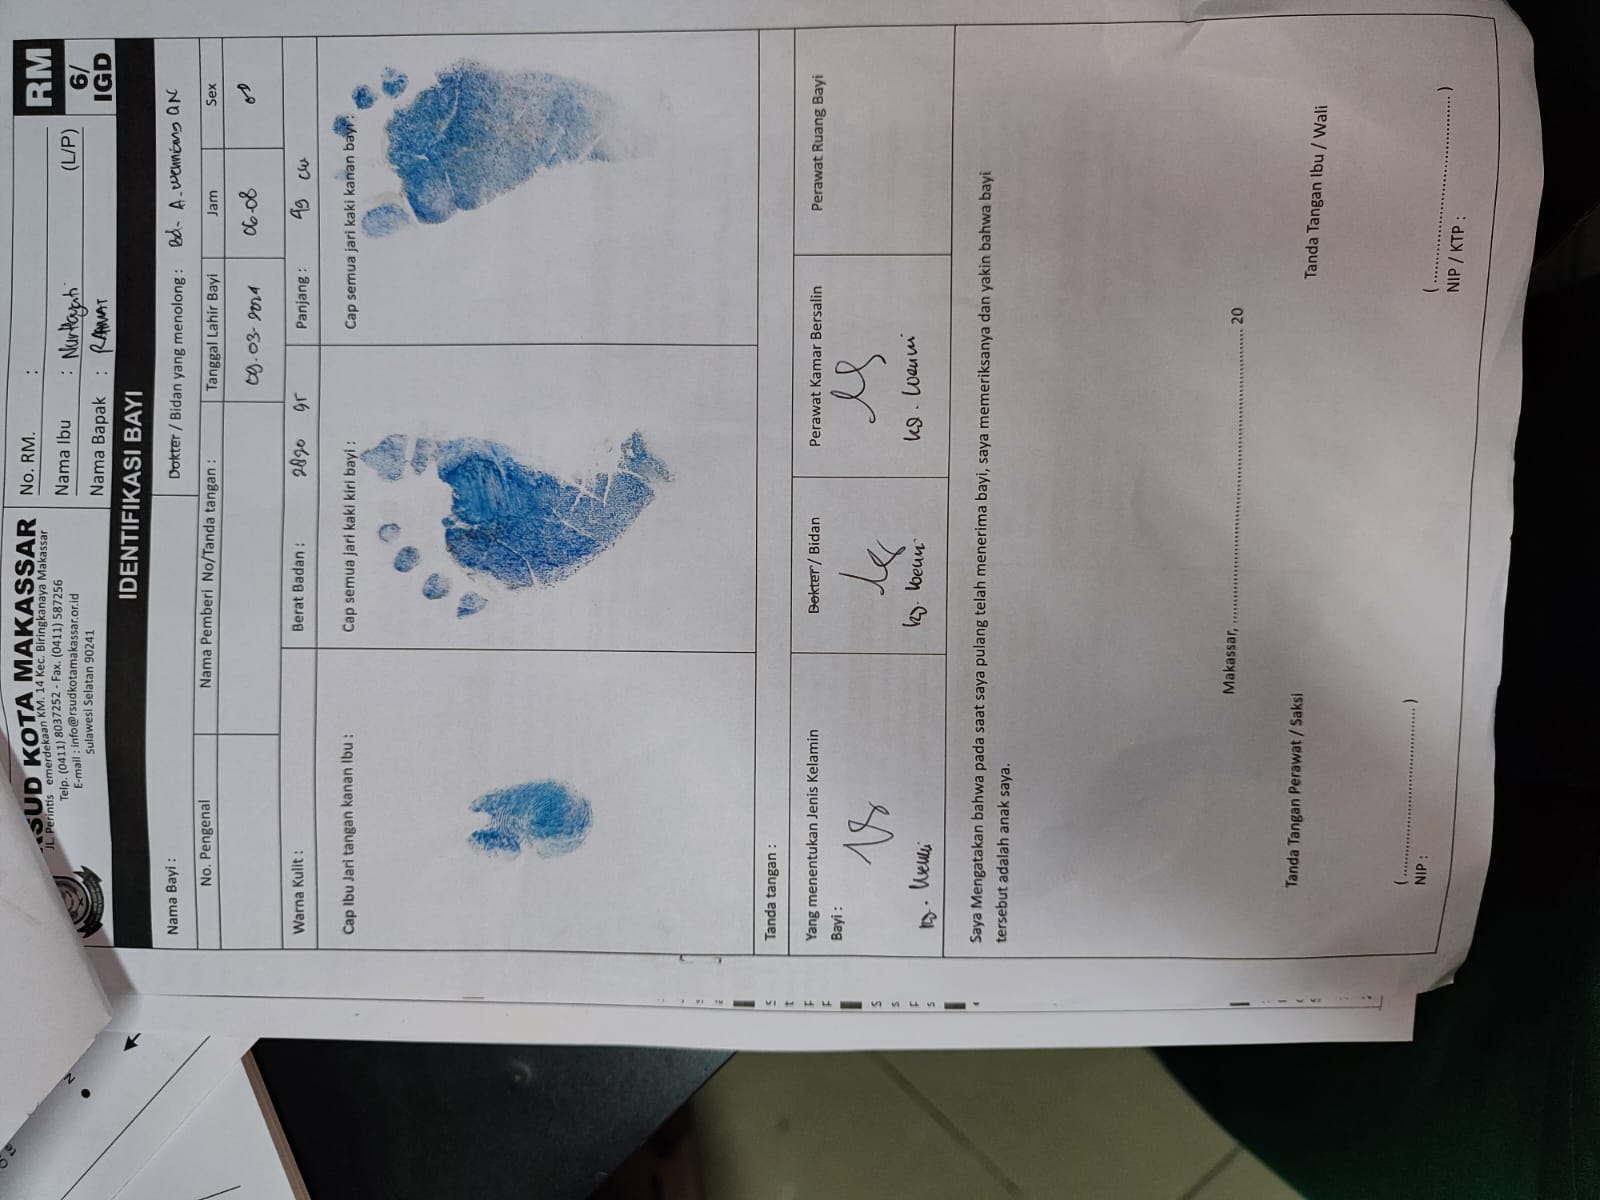 RSUD KOTA MAKASSAR
JL. Perintis emerdekaan KM. 14 Kec. Biringkanaya Makassar
Telp. (0411) 8037252 - Fax. (0411) 587256
E-mail : info@rsudkotamakassar.or.id
Sulawesi Selatan 90241
No. RM. :
Nama Ibu : Nurhayati (L/P)
Nama Bapak : RAHMAT
RM
6/
IGD
IDENTIFIKASI BAYI
Nama Bayi :
Dokter / Bidan yang menolong : Bd. A.
No. Pengenal
Nama Pemberi No/Tanda tangan :
Tanggal Lahir Bayi
Jam
Sex
09.03-2024
06.08
Warna Kulit :
Berat Badan : 2820 gr
Panjang : 49 cm
Cap Ibu Jari tangan kanan Ibu :
Cap semua jari kaki kiri bayi :
Cap semua jari kaki kanan bayi :
Tanda tangan :
Yang menentukan Jenis Kelamin
Bayi :
Dokter / Bidan
Perawat Kamar Bersalin
Perawat Ruang Bayi
Saya Mengatakan bahwa pada saat saya pulang telah menerima bayi, saya memeriksanya dan yakin bahwa bayi
tersebut adalah anak saya.
Makassar, ........................................................................ 20
Tanda Tangan Perawat / Saksi
Tanda Tangan Ibu / Wali
( .......................................... )
NIP :
( .............................................. )
NIP / KTP :